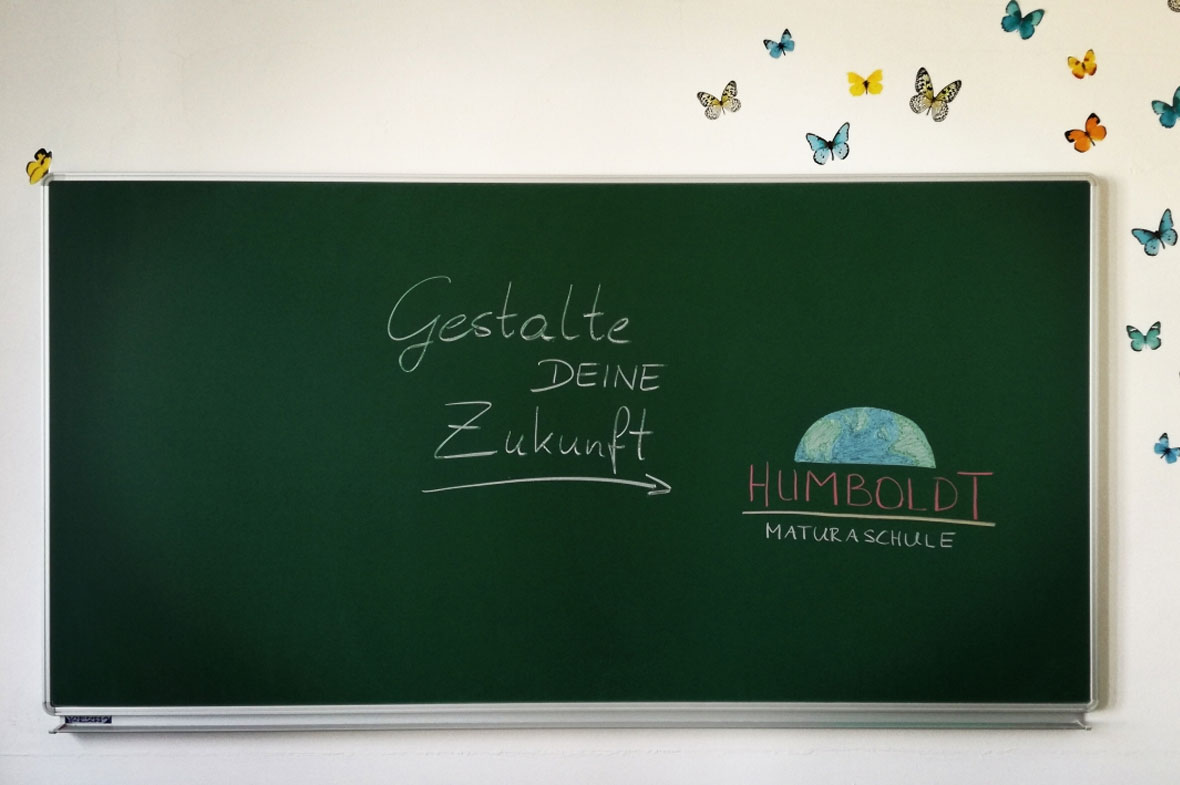 Gestalte
DEINE
Zukunft
HUMBOLDT
MATURASCHULE